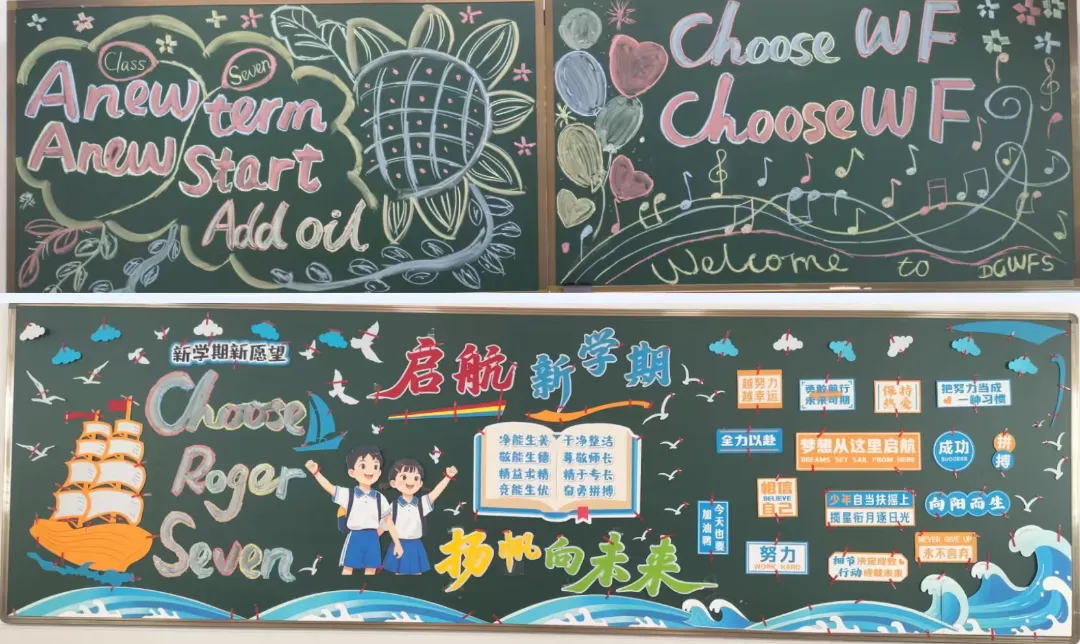 Class
Seven
A new term
A new Start
Add oil
Choose WF
Choose WF
Welcome to DGWFS
新学期新愿望
Choose
Roger
Seven
启航新学期
净能生美 干净整洁
敬能生德 尊敬师长
精益求精 精于专长
竞能生优 奋勇拼搏
扬帆向未来
越努力
越幸运
勇敢航行
未来可期
保持
热爱
把努力当成
一种习惯
全力以赴
梦想从这里启航
DREAMS SET SAIL FROM HERE
成功
SUCCESS
拼搏
相信
BELIEVE
自己
少年自当扶摇上
揽星衔月逐日光
向阳而生
今天也要
加油鸭
努力
WORK HARD
细节决定成败
行动成就未来
NEVER GIVE UP
永不言弃